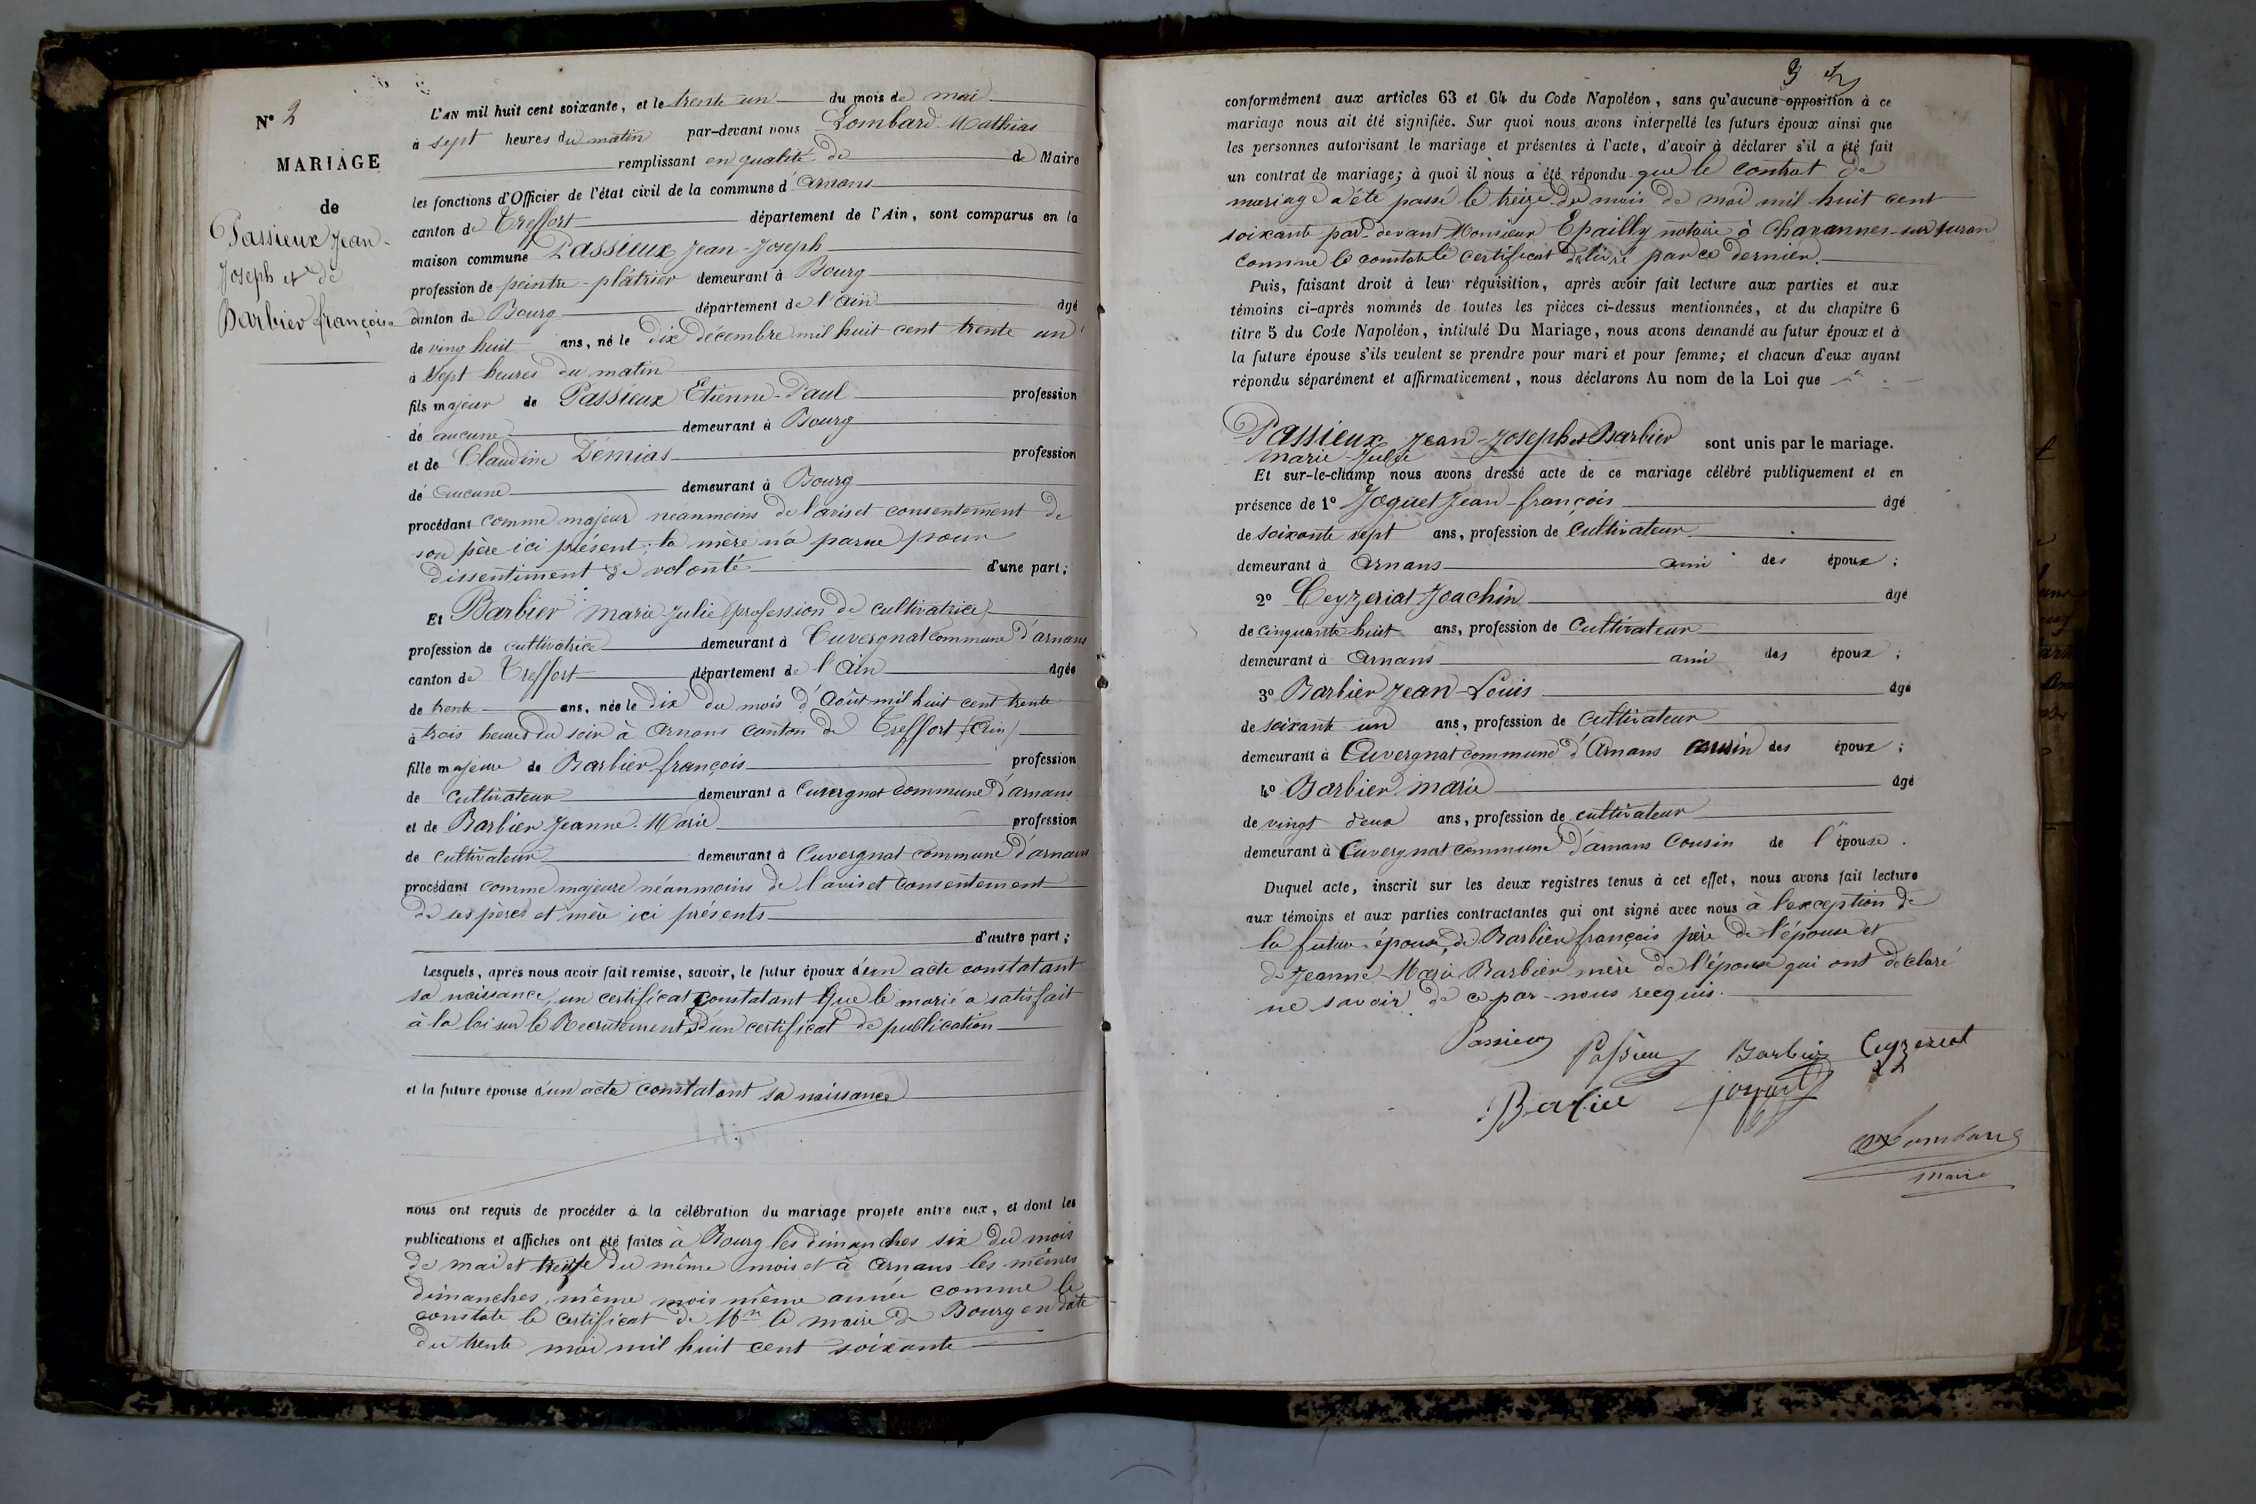 N° 2
MARIAGE
de
Passieux Jean-
Joseph et de
Barbier françoise
L'AN mil huit cent soixante, et le trente un du mois de mai
à sept heures du matin par-devant nous Lombard Mathias
remplissant en qualité de de Maire
les fonctions d'Officier de l'état civil de la commune d'Arnans
canton de Treffort département de l'Ain, sont comparus en la
maison commune Passieux Jean-Joseph
profession de peintre-plâtrier demeurant à Bourg
canton de Bourg département de l'ain âgé
de ving huit ans, né le dix décembre mil huit cent trente un
à sept heures du matin
fils majeur de Passieux Etienne-Paul profession
de aucune demeurant à Bourg
et de Claudine Démias profession
de aucune demeurant à Bourg
procédant comme majeur neanmoins de l'avis et consentement de
son père ici présent; la mère n'a parue pour
dissentiment de volonté d'une part;
Et Barbier Marie Julie (profession de cultivatrice)
profession de cultivatrice demeurant à Cuvergnat commune d'arnans
canton de Treffort département de l'ain âgée
de trente ans, née le dix du mois d'Août mil huit cent trente
à trois heures du soir à Arnans canton de Treffort (Ain)
fille majeure de Barbier françois profession
de cultivateur demeurant à Cuvergnat commune d'arnans
et de Barbier Jeanne-Marie profession
de cultivateur demeurant à Cuvergnat commune d'arnans
procédant comme majeure néanmoins de l'avis et consentement
de ses pères et mère ici présents
d'autre part;
Lesquels, après nous avoir fait remise, savoir, le futur époux d'un acte constatant
sa naissance, un certificat constatant que le marié a satisfait
à la loi sur le Recrutement, d'un certificat de publication
et la future épouse d'un acte constatant sa naissance
nous ont requis de procéder à la célébration du mariage projeté entre eux, et dont les
publications et affiches ont été faites à Bourg les dimanches six du mois
de mai et treize du même mois et à Arnans les mêmes
dimanches, même mois même année comme le
constate le certificat de Mr le maire de Bourg en date
du trente mai mil huit cent soixante
3
conformément aux articles 63 et 64 du Code Napoléon, sans qu'aucune opposition à ce
mariage nous ait été signifiée. Sur quoi nous avons interpellé les futurs époux ainsi que
les personnes autorisant le mariage et présentes à l'acte, d'avoir à déclarer s'il a été fait
un contrat de mariage; à quoi il nous a été répondu que le contrat de
mariage a été passé le treize du mois de mai mil huit cent
soixante par-devant Monsieur Epailly notaire à Chavannes-sur-suran
comme le constate le certificat délivré par ce dernier.
Puis, faisant droit à leur réquisition, après avoir fait lecture aux parties et aux
témoins ci-après nommés de toutes les pièces ci-dessus mentionnées, et du chapitre 6
titre 5 du Code Napoléon, intitulé Du Mariage, nous avons demandé au futur époux et à
la future épouse s'ils veulent se prendre pour mari et pour femme; et chacun d'eux ayant
répondu séparément et affirmativement, nous déclarons Au nom de la Loi que
Passieux Jean-Joseph et Barbier sont unis par le mariage.
Marie-Julie
Et sur-le-champ nous avons dressé acte de ce mariage célébré publiquement et en
présence de 1° Joquet Jean-françois âgé
de soixante sept ans, profession de Cultivateur
demeurant à Arnans ami des époux;
2° Ceyzeriat Joachin âgé
de cinquante huit ans, profession de Cultivateur
demeurant à Arnans ami des époux;
3° Barbier Jean-Louis âgé
de soixante un ans, profession de Cultivateur
demeurant à Cuvergnat commune d'Arnans cousin des époux;
4° Barbier Marie âgé
de vingt deux ans, profession de cultivateur
demeurant à Cuvergnat commune d'arnans Cousin de l'épouse.
Duquel acte, inscrit sur les deux registres tenus à cet effet, nous avons fait lecture
aux témoins et aux parties contractantes qui ont signé avec nous à l'exception de
la future épouse, de Barbier françois père de l'épouse et
de Jeanne-Marie Barbier mère de l'épouse qui ont déclaré
ne savoir de ce par-nous recquis.
Passieux Passieux Barbier Ceyzeriat
Barbier joquet
Lombard
Maire